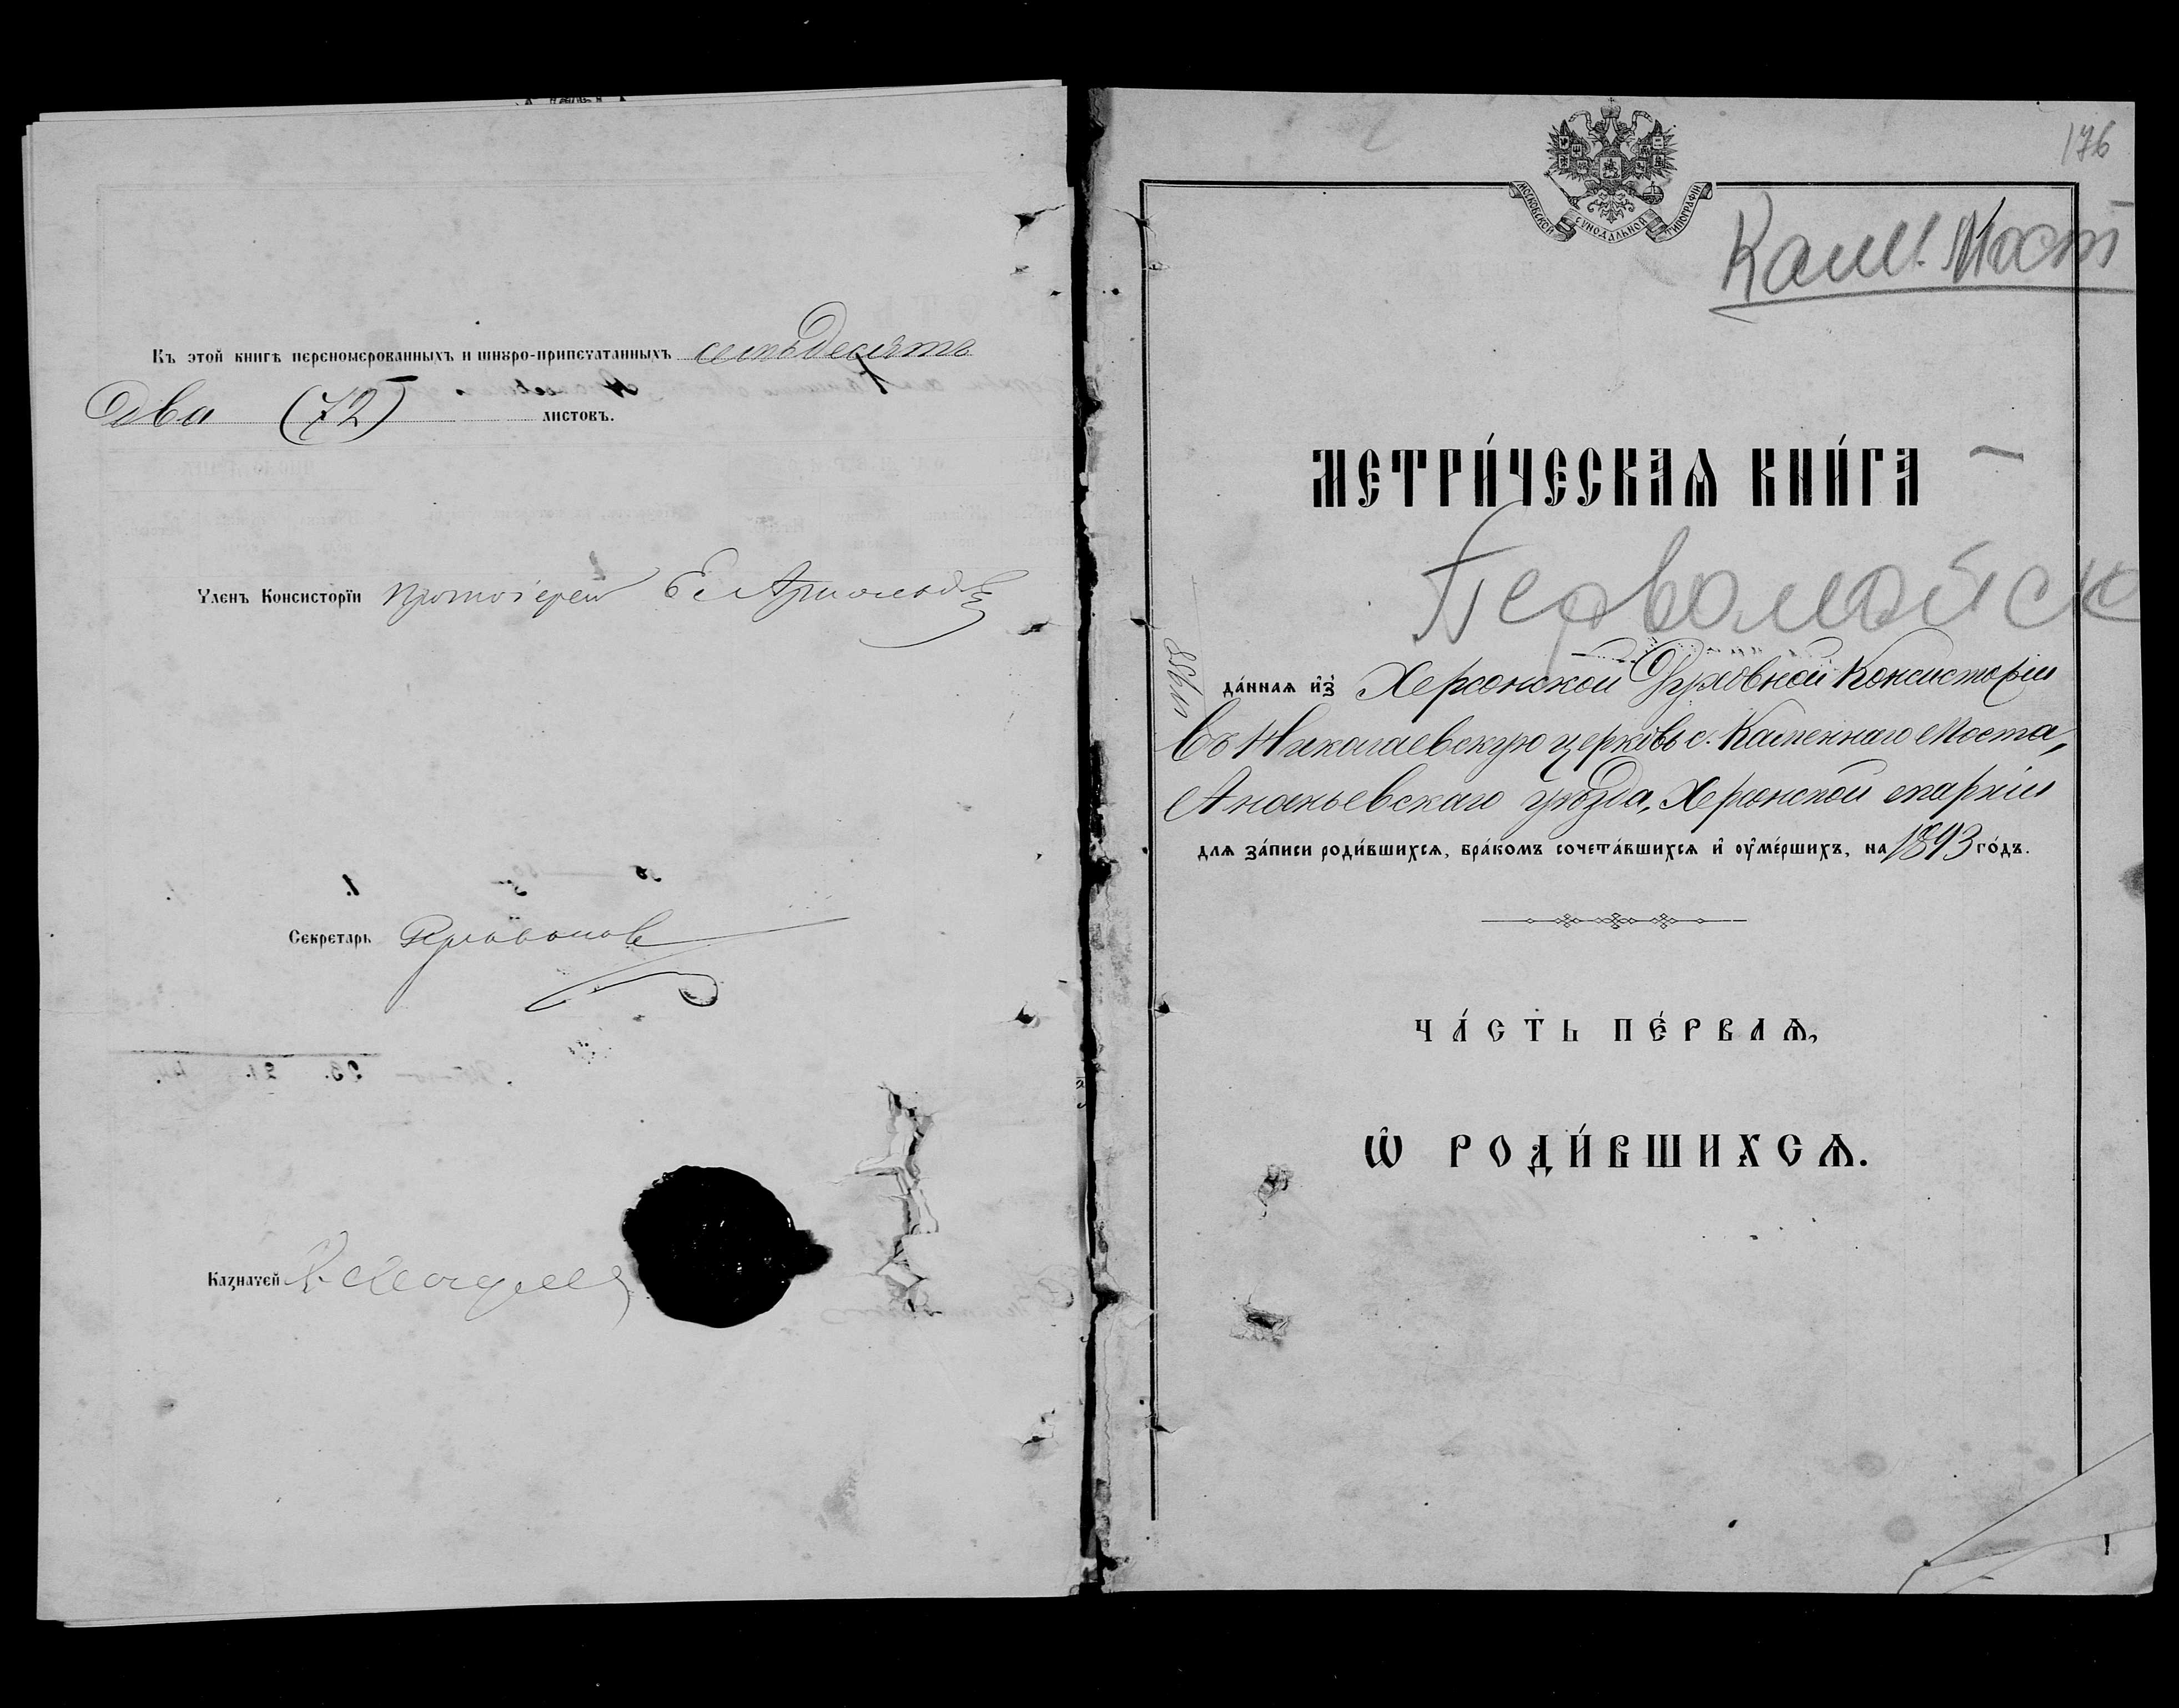 Къ этой книгѣ перенꙋмерованныхъ и шнꙋро-припечатанныхъ семьдесятъ
два (72) листовъ.
Членъ Консисторїи протоіерей
Секретарь
Казначей
176
МОСКОВСКОЙ СѴНОДАЛЬНОЙ ТИПОГРАФІИ
Кам. Мост
МЕТРИ́ЧЕСКАѦ КНИ́ГА
Первомайск
да́ннаѧ и҆з̾ Херсонской Духовной Консисторіи
въ Николаевскую церковь с. Каменнаго Моста,
Ананьевскаго уѣзда, Херсонской епархіи
длѧ за́писи роди́вшихсѧ, бра́комъ сочета́вшихсѧ и҆ ᲂу҆ме́ршихъ, на 1893 го́дъ.
ЧА́СТЬ ПЕ́РВАѦ,
Ѡ҆ РОДИ́ВШИХСѦ.